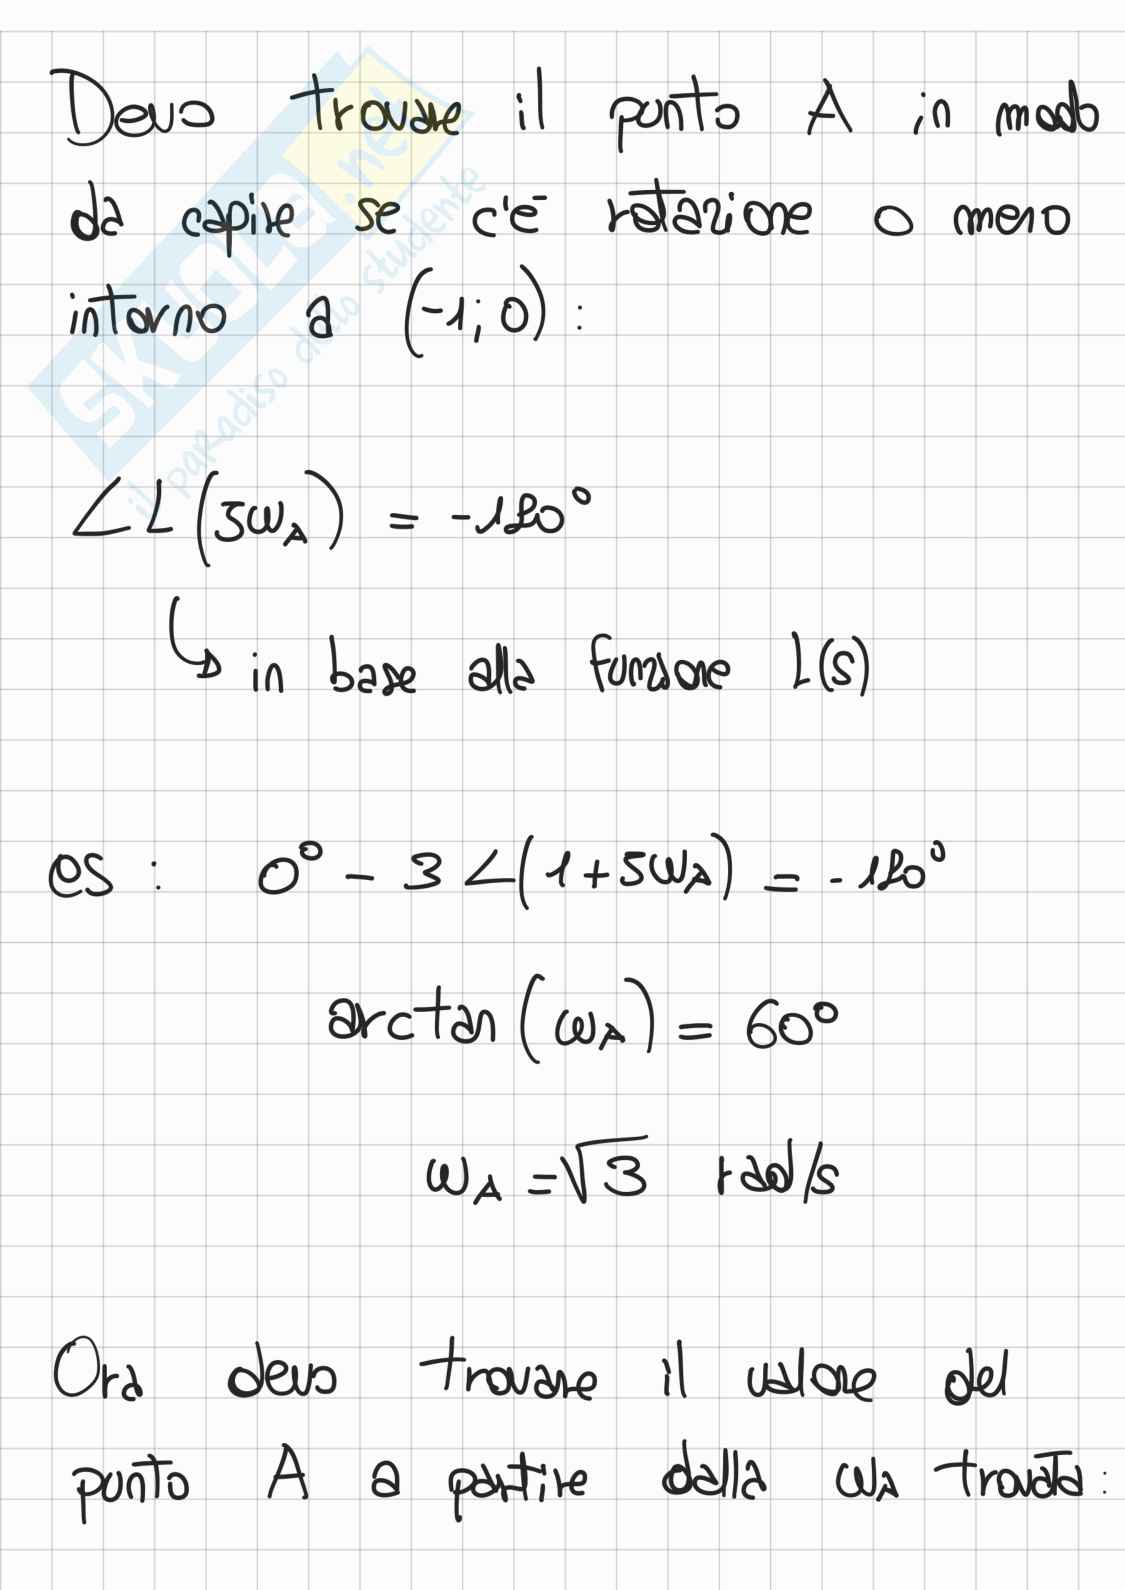 Devo trovare il punto A in modo
da capire se c'è rotazione o meno
intorno a (-1; 0) :
∠L(jωA) = -180°
↳ in base alla funzione L(s)
es : 0° - 3∠(1+jωA) = -180°
arctan(ωA) = 60°
ωA = √3 rad/s
Ora devo trovare il valore del
punto A a partire dalla ωA trovata :
SKUOLA.net
il paradiso dello studente